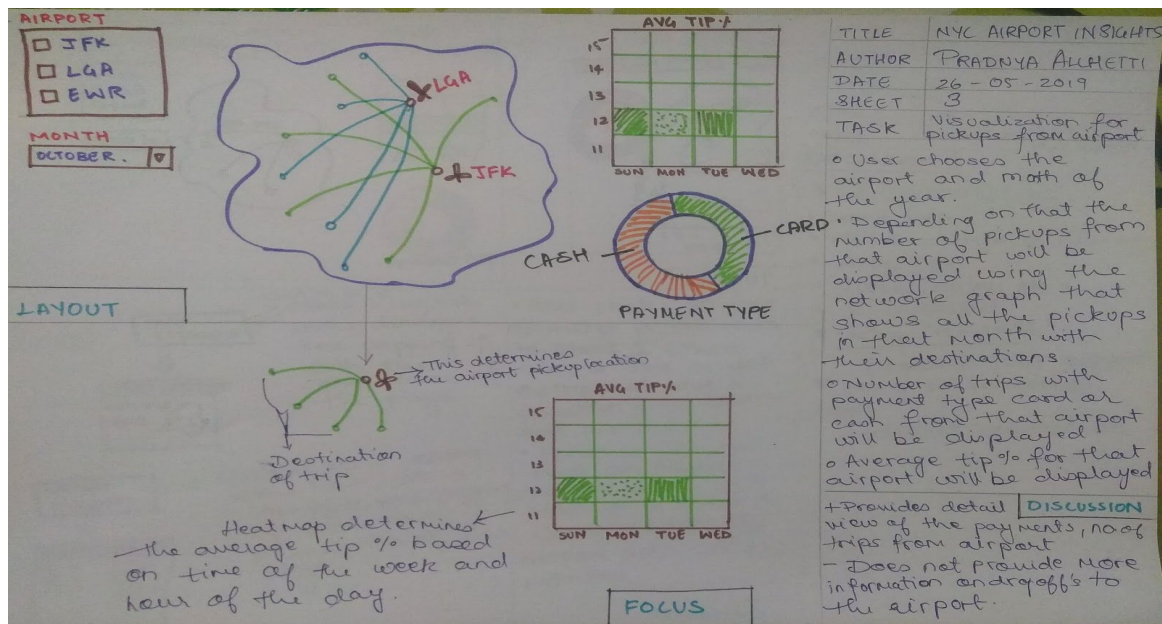 AIRPORT
JFK
LGA
EWR
MONTH
OCTOBER.
LGA
JFK
LAYOUT
AVG TIP%
15
14
13
12
11
SUN MON TUE WED
CASH
CARD
PAYMENT TYPE
This determines
the airport pickup location
Destination
of trip
Heatmap determines
the average tip % based
on time of the week and
hour of the day.
AVG TIP%
15
14
13
12
11
SUN MON TUE WED
FOCUS
TITLE NYC AIRPORT INSIGHTS
AUTHOR PRADNYA ALCHETTI
DATE 26-05-2019
SHEET 3
TASK Visualization for
pickups from airport
User chooses the
airport and moth of
the year.
Depending on that the
number of pickups from
that airport will be
displayed using the
network graph that
shows all the pickups
in that month with
their destinations.
Number of trips with
payment type card or
cash from that airport
will be displayed
Average tip % for that
airport will be displayed
DISCUSSION
+ Provides detail
view of the payments, no of
trips from airport
- Does not provide more
information on dropoff's to
the airport.